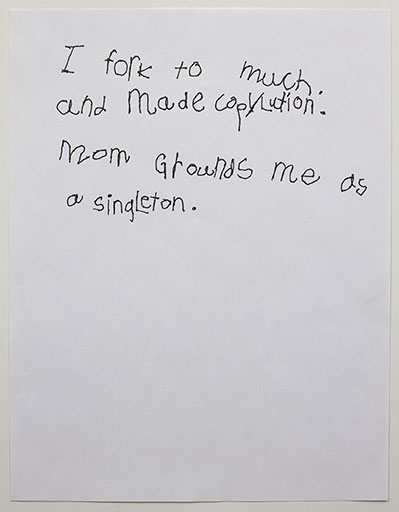 I fork to much.
and Made copylution.
Mom Grounds me as
a singleton.